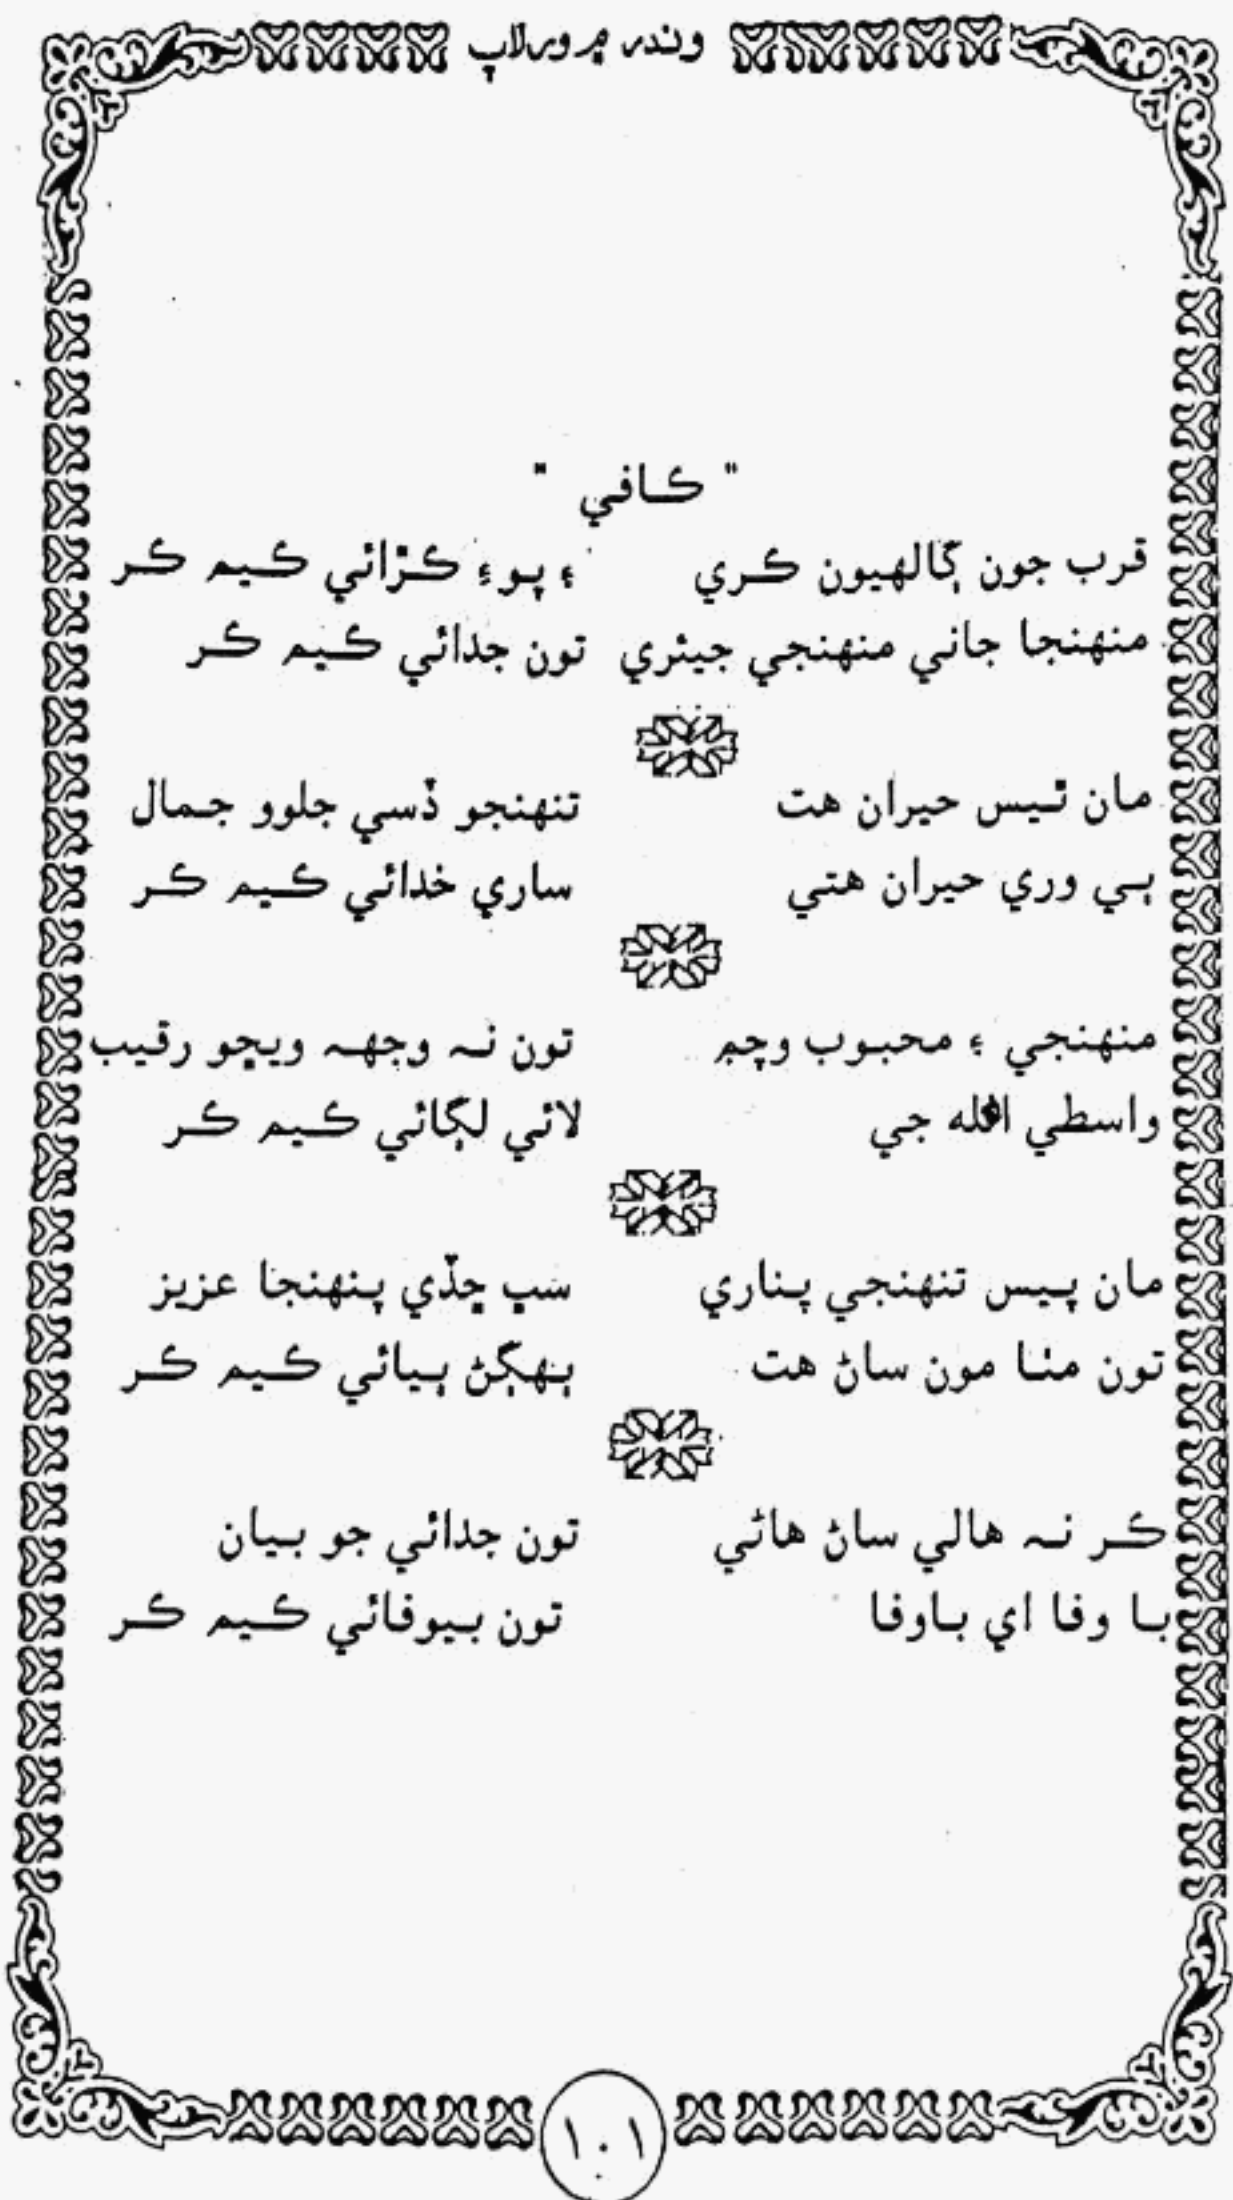 وندر ۾ ورلاپ
" ڪافي "
قرب جون ڳالهيون ڪري ۽ پوءِ ڪڙائي ڪيم ڪر
منهنجا جاني منهنجي جيئري تون جدائي ڪيم ڪر
مان ٿيس حيران هت تنهنجو ڏسي جلوو جمال
ٻي وري حيران هتي ساري خدائي ڪيم ڪر
منهنجي ۽ محبوب وچ۾ تون نہ وجهہ ويڇو رقيب
واسطي الله جي لائي لڳائي ڪيم ڪر
مان پيس تنهنجي پناري سڀ ڇڏي پنهنجا عزيز
تون مٺا مون ساڻ هت ٻهڳڻ ٻيائي ڪيم ڪر
ڪر نہ هالي ساڻ هاڻي تون جدائي جو بيان
با وفا اي باوفا تون بيوفائي ڪيم ڪر
١٠١